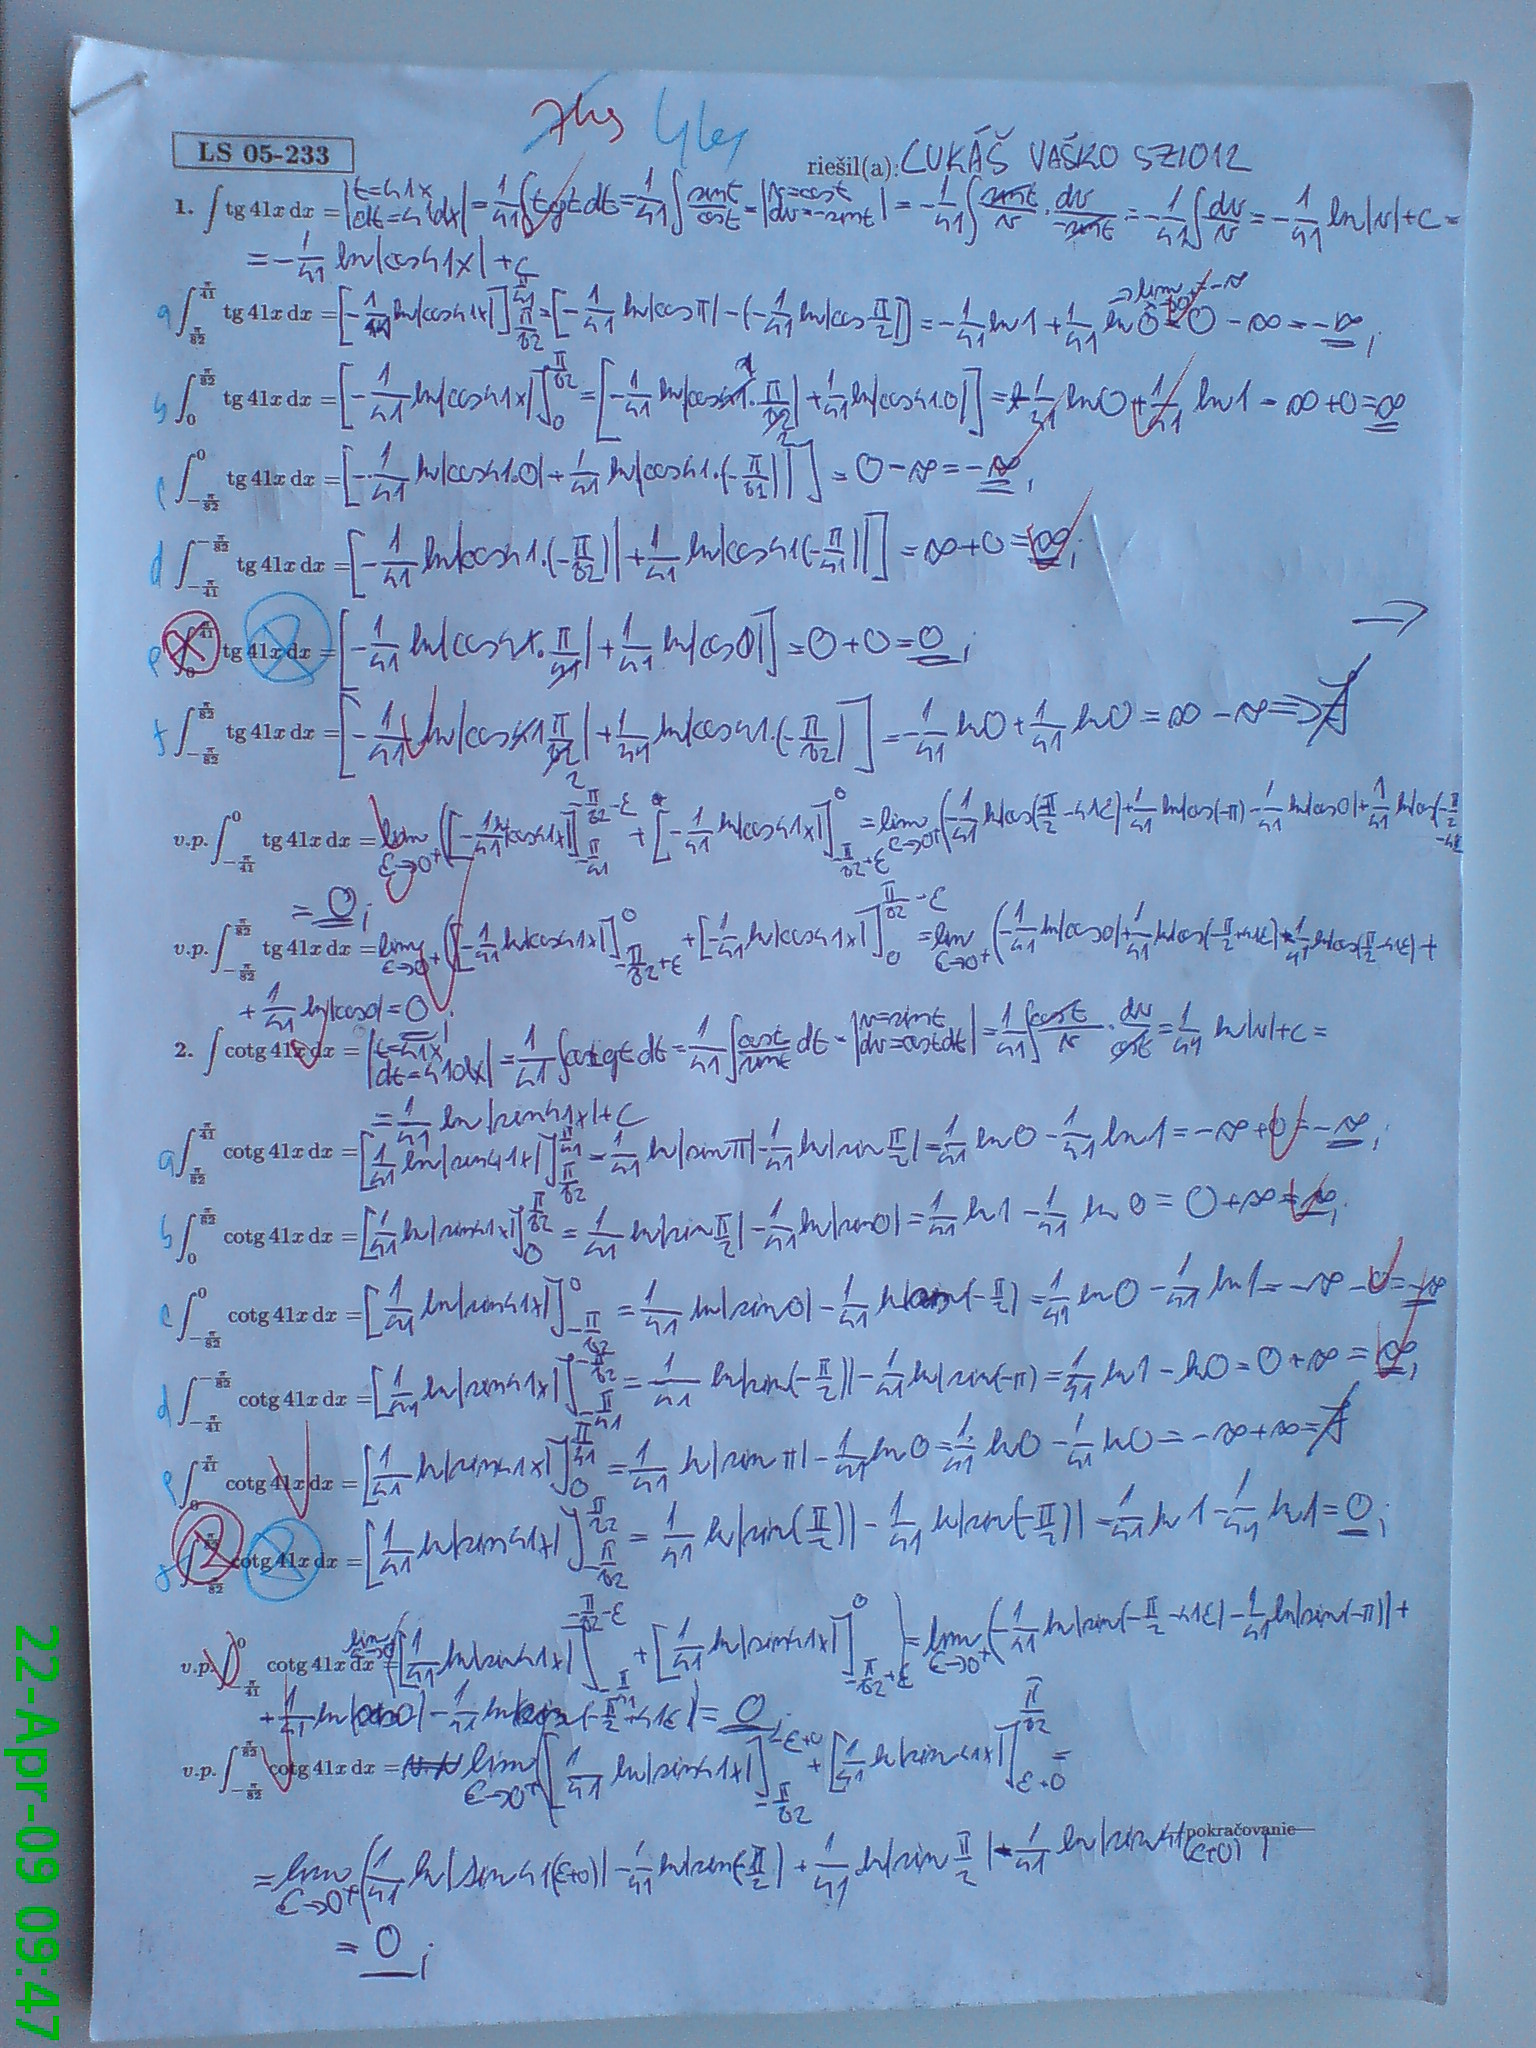 LS 05-233
riešil(a): LUKÁŠ VAŠKO 5Z1012
1. ∫ tg 41x dx = |t=41x dt=41dx| = 1/41 ∫ tgt dt = 1/41 ∫ sint/cost = |v=cost dv=-sint| = -1/41 ∫ sint/v · dv/-sint = -1/41 ∫ dv/v = -1/41 ln|v|+c =
= -1/41 ln|cos41x|+c
a ∫_{π/82}^{π/41} tg 41x dx = [-1/41 ln|cos41x|]_{π/82}^{π/41} = [-1/41 ln|cosπ| - (-1/41 ln|cos π/2|)] = -1/41 ln1 + 1/41 ln0 = 0 - ∞ = -∞;
b ∫_0^{π/82} tg 41x dx = [-1/41 ln|cos41x|]_0^{π/82} = [-1/41 ln|cos41·π/82| + 1/41 ln|cos41.0|] = -1/41 ln0 + 1/41 ln1 = ∞+0 = ∞
c ∫_{-π/82}^0 tg 41x dx = [-1/41 ln|cos41.0| + 1/41 ln|cos41.(-π/82)|] = 0-∞ = -∞;
d ∫_{-π/41}^{-π/82} tg 41x dx = [-1/41 ln|cos41.(-π/82)| + 1/41 ln|cos41(-π/41)|] = ∞+0 = ∞;
e ∫_0^{π/41} tg 41x dx = [-1/41 ln|cos41.π/41| + 1/41 ln|cos0|] = 0+0 = 0;
f ∫_{-π/82}^{π/82} tg 41x dx = [-1/41 ln|cos41 π/82| + 1/41 ln|cos41.(-π/82)|] = -1/41 ln0 + 1/41 ln0 = ∞-∞ ⇒ ∄
v.p. ∫_{-π/41}^0 tg 41x dx = lim_{ε→0+} ([-1/41 ln|cos41x|]_{-π/41}^{-π/82-ε} + [-1/41 ln|cos41x|]_{-π/82+ε}^0 = lim_{ε→0+} (-1/41 ln|cos(-π/2-41ε)| + 1/41 ln|cos(-π)| - 1/41 ln|cos0| + 1/41 ln|cos(-π/2
= 0;
v.p. ∫_{-π/82}^{π/82} tg 41x dx = lim_{ε→0+} ([-1/41 ln|cos41x|]_{-π/82+ε}^0 + [-1/41 ln|cos41x|]_0^{π/82-ε} = lim_{ε→0+} (-1/41 ln|cos0| + 1/41 ln|cos(-π/2+41ε)| - 1/41 ln|cos(π/2-41ε)| +
+ 1/41 ln|cos0| = 0;
2. ∫ cotg 41x dx = |t=41x dt=41dx| = 1/41 ∫ cotgt dt = 1/41 ∫ cost/sint dt = |v=sint dv=costdt| = 1/41 ∫ cost/v · dv/cost = 1/41 ln|v|+c =
= 1/41 ln|sin41x|+c
a ∫_{π/82}^{π/41} cotg 41x dx = [1/41 ln|sin41x|]_{π/82}^{π/41} = 1/41 ln|sinπ| - 1/41 ln|sin π/2| = 1/41 ln0 - 1/41 ln1 = -∞+0 = -∞;
b ∫_0^{π/82} cotg 41x dx = [1/41 ln|sin41x|]_0^{π/82} = 1/41 ln|sin π/2| - 1/41 ln|sin0| = 1/41 ln1 - 1/41 ln0 = 0+∞ = ∞;
c ∫_{-π/82}^0 cotg 41x dx = [1/41 ln|sin41x|]_{-π/82}^0 = 1/41 ln|sin0| - 1/41 ln|sin(-π/2)| = 1/41 ln0 - 1/41 ln1 = -∞-0 = -∞
d ∫_{-π/41}^{-π/82} cotg 41x dx = [1/41 ln|sin41x|]_{-π/41}^{-π/82} = 1/41 ln|sin(-π/2)| - 1/41 ln|sin(-π) = 1/41 ln1 - ln0 = 0+∞ = ∞;
e ∫_0^{π/41} cotg 41x dx = [1/41 ln|sin41x|]_0^{π/41} = 1/41 ln|sinπ| - 1/41 ln0 = 1/41 ln0 - 1/41 ln0 = -∞+∞ = ∄
f ∫_{-π/82}^{π/82} cotg 41x dx = [1/41 ln|sin41x|]_{-π/82}^{π/82} = 1/41 ln|sin(π/2)| - 1/41 ln|sin(-π/2)| = 1/41 ln1 - 1/41 ln1 = 0;
v.p. ∫_{-π/41}^0 cotg 41x dx = lim_{ε→0} ([1/41 ln|sin41x|]_{-π/41}^{-π/82-ε} + [1/41 ln|sin41x|]_{-π/82+ε}^0) = lim_{ε→0+} (-1/41 ln|sin(-π/2-41ε) - 1/41 ln|sin(-π)| +
+ 1/41 ln|sin0| - 1/41 ln|sin(-π/2+41ε)| = 0;
v.p. ∫_{-π/82}^{π/82} cotg 41x dx = lim_{ε→0+} ([1/41 ln|sin41x|]_{-π/82}^{-ε+0} + [1/41 ln|sin41x|]_{ε+0}^{π/82} =
pokračovanie
= lim_{ε→0+} (1/41 ln|sin41(ε+0)| - 1/41 ln|sin(-π/2)| + 1/41 ln|sin π/2| - 1/41 ln|sin41(ε+0)|
= 0;
22-Apr-09 09:47